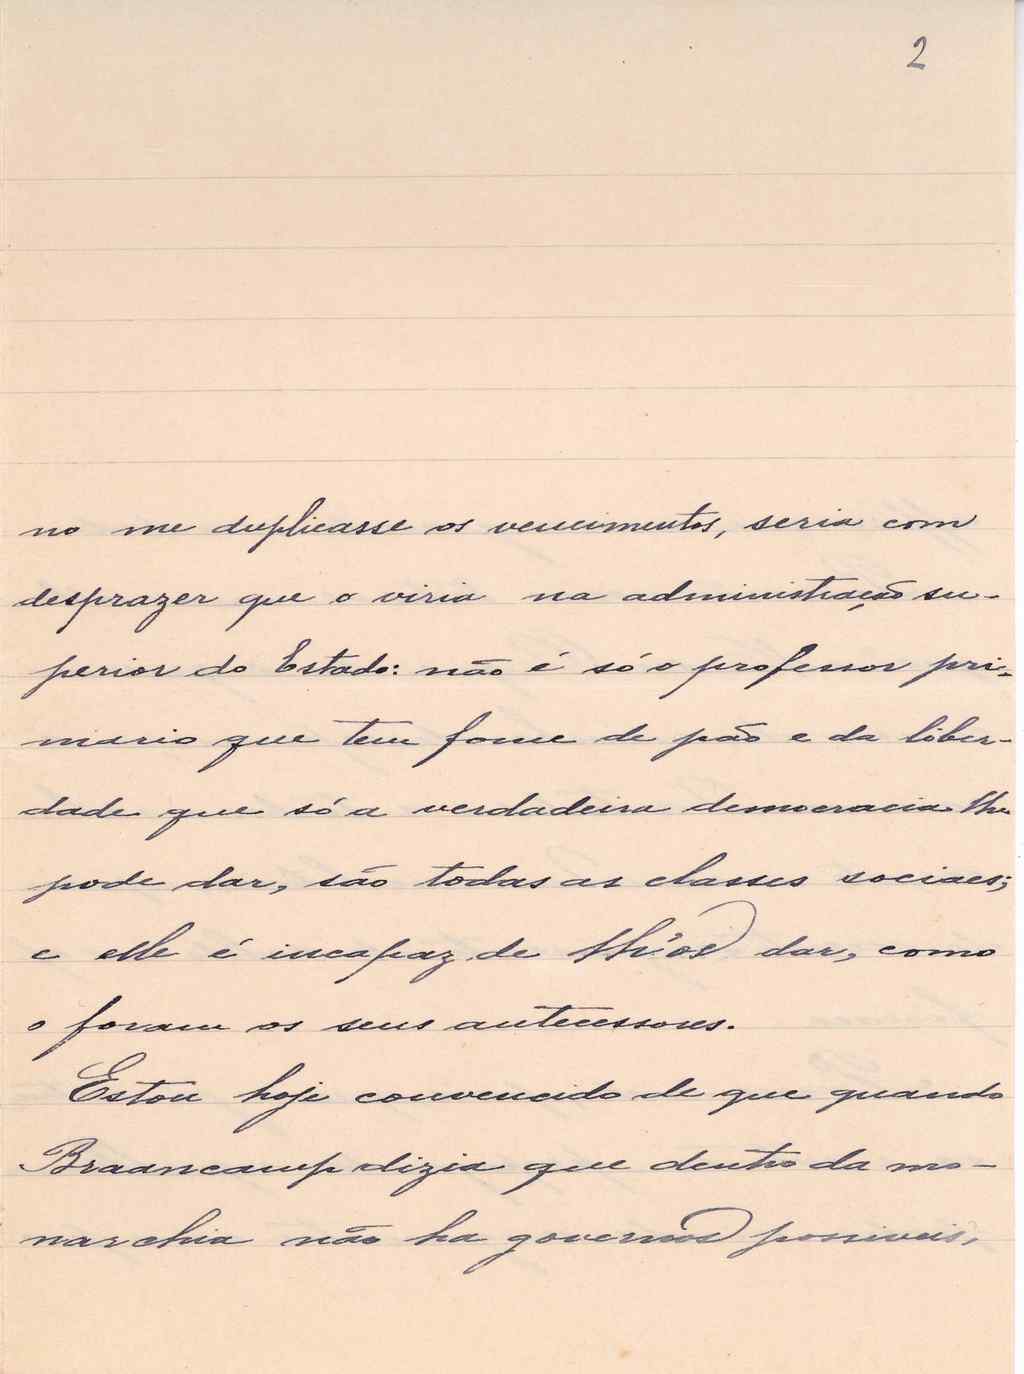 2
no me duplicasse os vencimentos, seria com
desprazer que o viria na administração su-
perior do Estado: não é só o professor pri-
mario que tem fome de pão e da liber-
dade que só a verdadeira democracia lhe
pode dar, são todas as classes sociaes;
e elle é incapaz de lh'os dar, como
o foram os seus antecessores.
Estou hoje convencido de que quando
Braancamp dizia que dentro da mo-
narchia não ha governos possiveis,